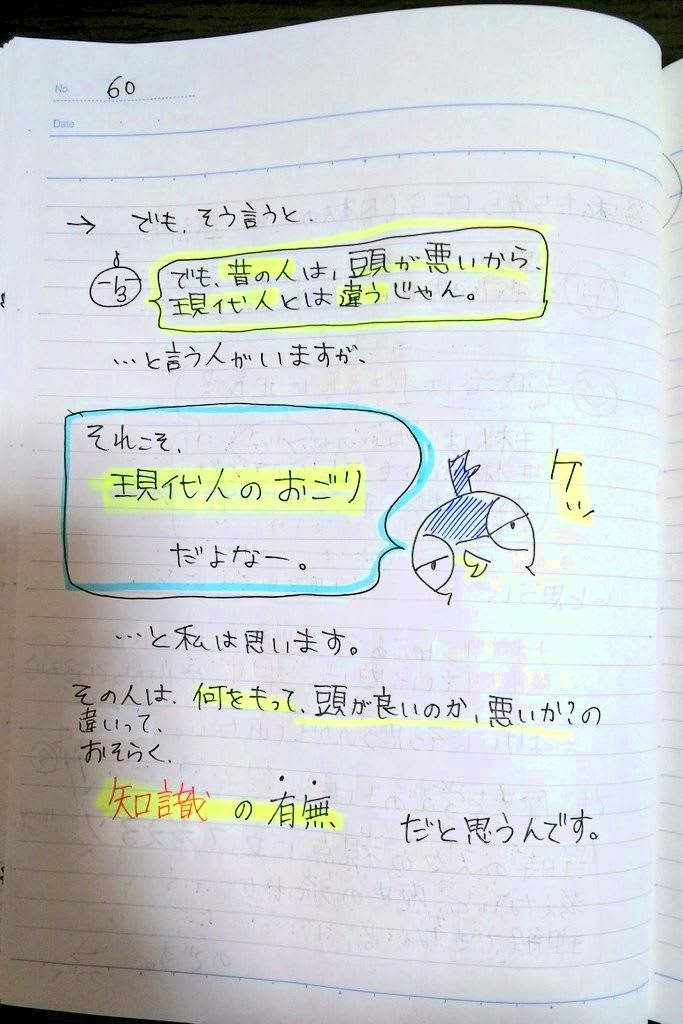 No. 60
Date
→ でも、そう言うと、
でも、昔の人は、頭が悪いから、
現代人とは違うじゃん。
…と言う人がいますが、
それこそ、
現代人のおごり
だよなー。
ケッ
…と私は思います。
その人は、何をもって、頭が良いのか、悪いか?の
違いって、
おそらく、
知識の有無
だと思うんです。